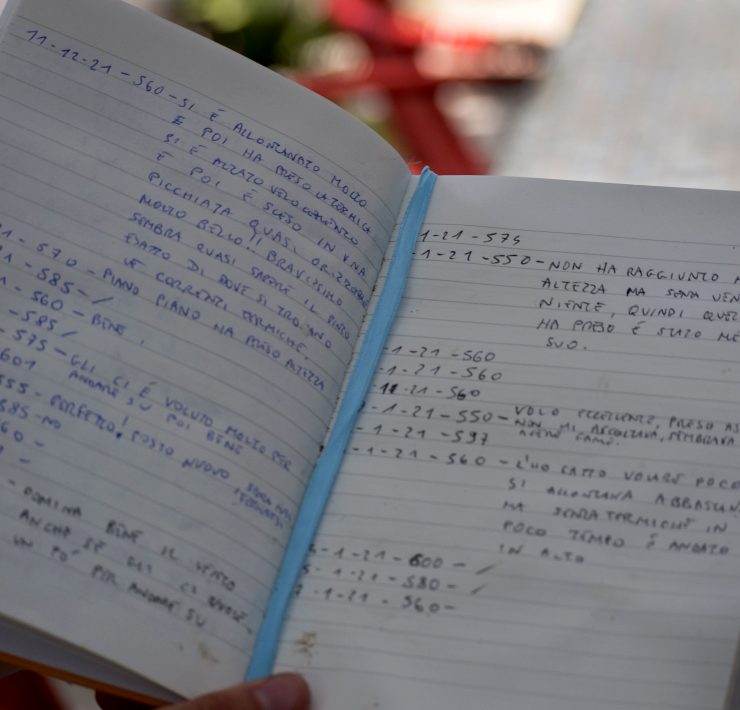 11-12-21-560-SI È ALLONTANATO MOLTO
E POI HA PRESO LA TERMICA
SI È ALZATO VELOCEMENTE
E POI È SCESO IN UNA
PICCHIATA QUASI ORIZZONTALE
MOLTO BELLO!! BRAVISSIMO
SEMBRA QUASI SAPERE IL PUNTO
ESATTO DI DOVE SI TROVANO
LE CORRENTI TERMICHE.
1-570-PIANO PIANO HA PRESO ALTEZZA
1-585-/
1-560-BENE.
-585/
-575-GLI CI È VOLUTO MOLTO PER
601 ANDARE SU POI BENE
555-PERFETTO! POSTO NUOVO SENZA
585-NO
60-
-
-DOMINA BENE IL VENTO
ANCHE SE GLI CI VUOLE
UN PO' PER ANDARE SU
1-21-574
-1-21-550-NON HA RAGGIUNTO
ALTEZZA MA SENZA VEN
NIENTE, QUINDI QUEL
HA PRESO È STATO ME
SUO.
-1-21-560
-1-21-560
11-21-560
-1-21-550-VOLO ECCELLENTE, PRESO AS
NON MI ASCOLTAVA, SEMBRAVA
-1-21-597 AVERE FAME.
-1-21-560-L'HO FATTO VOLARE POCO
SI ALLONTANA ABBASTAN
MA SENZA TERMICHE IN
POCO TEMPO È ANDATO
IN ALTO
-1-21-600-/
-1-21-580-/
-1-21-560-